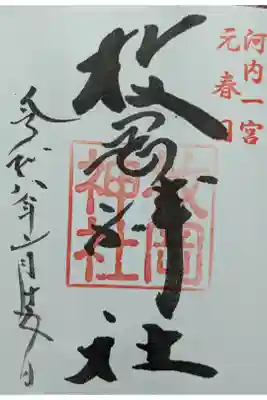 河内一宮
元春日
枚岡神社
枚岡
神社
令和八年月日